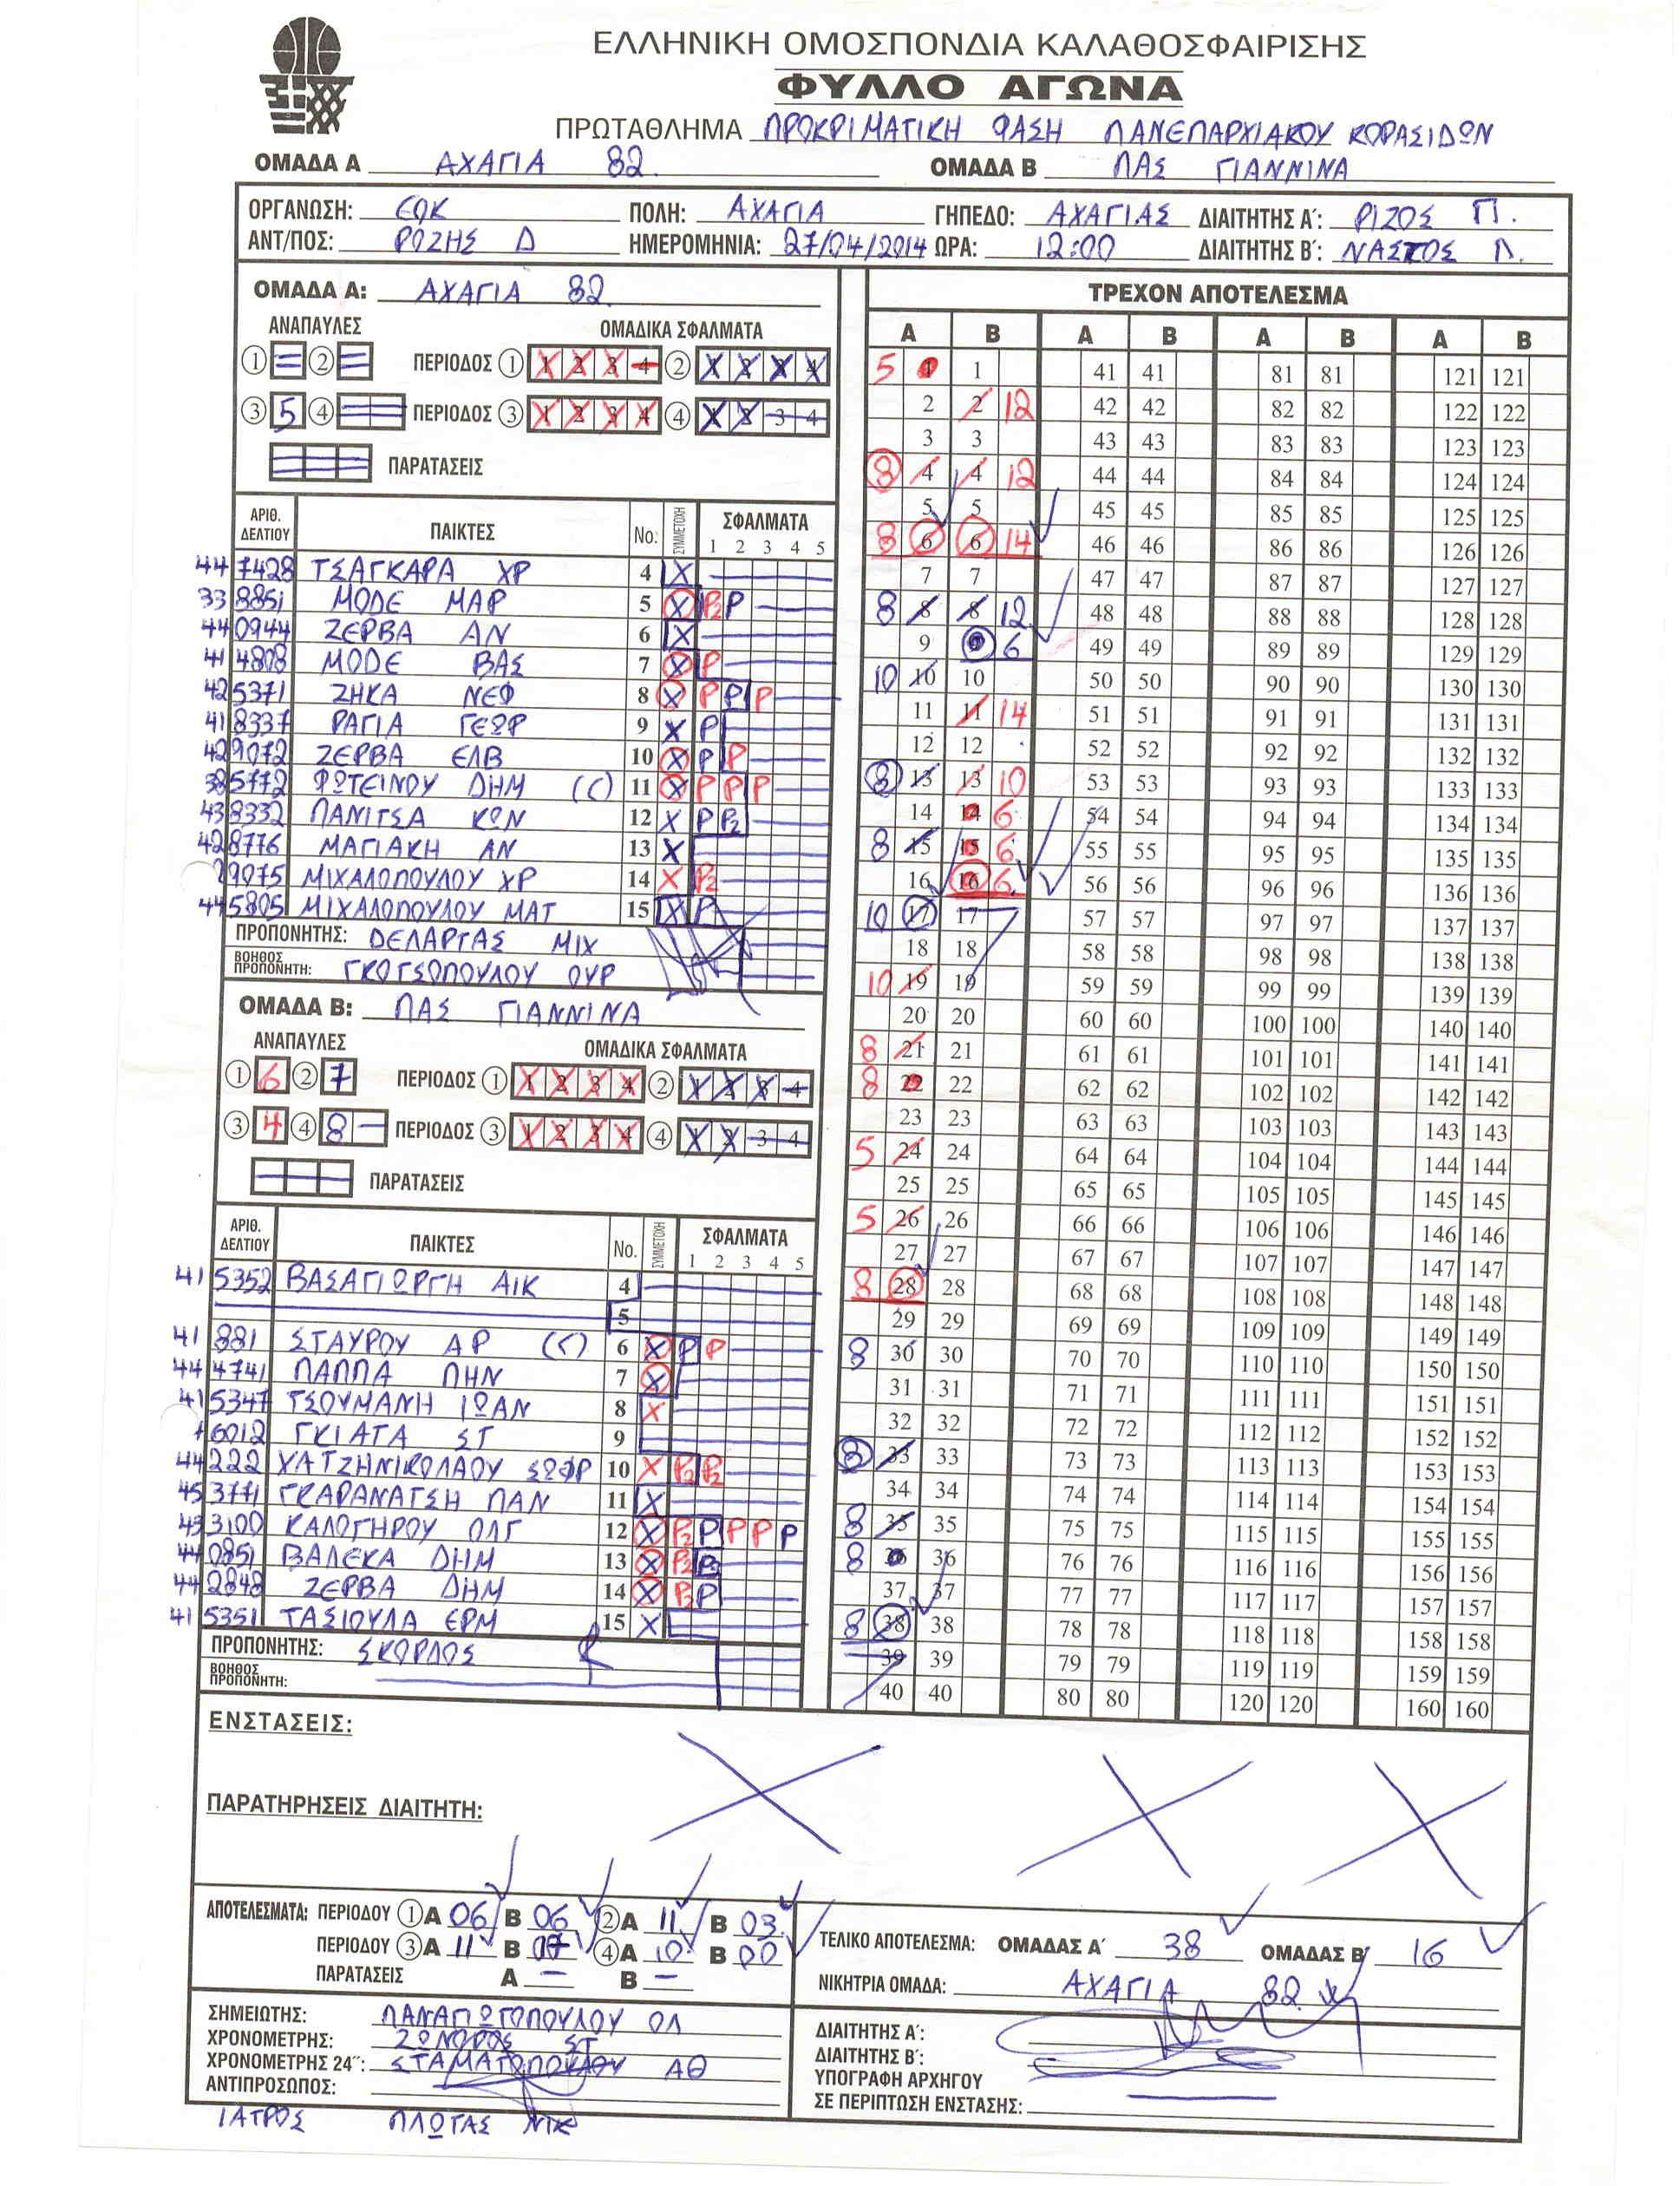 ΕΛΛΗΝΙΚΗ ΟΜΟΣΠΟΝΔΙΑ ΚΑΛΑΘΟΣΦΑΙΡΙΣΗΣ
ΦΥΛΛΟ ΑΓΩΝΑ
ΠΡΩΤΑΘΛΗΜΑ ΠΡΟΚΡΙΜΑΤΙΚΗ ΦΑΣΗ ΠΑΝΕΠΑΡΧΙΑΚΟΥ ΚΟΡΑΣΙΔΩΝ
ΟΜΑΔΑ Α ΑΧΑΓΙΑ 82 ΟΜΑΔΑ Β ΠΑΣ ΓΙΑΝΝΙΝΑ
ΟΡΓΑΝΩΣΗ: ΕΟΚ ΠΟΛΗ: ΑΧΑΓΙΑ ΓΗΠΕΔΟ: ΑΧΑΓΙΑΣ ΔΙΑΙΤΗΤΗΣ Α΄: ΡΙΖΟΣ Π.
ΑΝΤ/ΠΟΣ: ΡΟΖΗΣ Δ ΗΜΕΡΟΜΗΝΙΑ: 27/04/2014 ΩΡΑ: 12:00 ΔΙΑΙΤΗΤΗΣ Β΄: ΝΑΣΤΟΣ Π.
ΟΜΑΔΑ Α: ΑΧΑΓΙΑ 82
ΑΝΑΠΑΥΛΕΣ ΟΜΑΔΙΚΑ ΣΦΑΛΜΑΤΑ
① ② ΠΕΡΙΟΔΟΣ ① 1 2 3 4 ② 1 2 3 4
③ 5 ④ ΠΕΡΙΟΔΟΣ ③ 1 2 3 4 ④ 1 2 3 4
ΠΑΡΑΤΑΣΕΙΣ
ΑΡΙΘ. ΔΕΛΤΙΟΥ ΠΑΙΚΤΕΣ No. ΣΥΜΜΕΤΟΧΗ ΣΦΑΛΜΑΤΑ 1 2 3 4 5
447428 ΤΣΑΓΚΑΡΑ ΧΡ 4 X
338851 ΜΟDΕ ΜΑΡ 5 X P2 P
440944 ΖΕΡΒΑ ΑΝ 6 X
414808 ΜΟDΕ ΒΑΣ 7 X P
425371 ΖΗΚΑ ΝΕΦ 8 X P P P
418337 ΡΑΓΙΑ ΓΕΩΡ 9 X P
429072 ΖΕΡΒΑ ΕΛΒ 10 X P P
385772 ΦΩΤΕΙΝΟΥ ΔΗΜ (C) 11 X P P P
438332 ΠΑΝΙΤΣΑ ΚΩΝ 12 X P P2
428776 ΜΑΓΙΑΚΗ ΑΝ 13 X
29075 ΜΙΧΑΛΟΠΟΥΛΟΥ ΧΡ 14 X P2
445805 ΜΙΧΑΛΟΠΟΥΛΟΥ ΜΑΤ 15 X P
ΠΡΟΠΟΝΗΤΗΣ: ΔΕΛΑΡΤΑΣ ΜΙΧ
ΒΟΗΘΟΣ ΠΡΟΠΟΝΗΤΗ: ΓΚΟΤΣΟΠΟΥΛΟΥ ΟΥΡ
ΟΜΑΔΑ Β: ΠΑΣ ΓΙΑΝΝΙΝΑ
ΑΝΑΠΑΥΛΕΣ ΟΜΑΔΙΚΑ ΣΦΑΛΜΑΤΑ
① 6 ② 7 ΠΕΡΙΟΔΟΣ ① 1 2 3 4 ② 1 2 3 4
③ 4 ④ 8 ΠΕΡΙΟΔΟΣ ③ 1 2 3 4 ④ 1 2 3 4
ΠΑΡΑΤΑΣΕΙΣ
ΑΡΙΘ. ΔΕΛΤΙΟΥ ΠΑΙΚΤΕΣ No. ΣΥΜΜΕΤΟΧΗ ΣΦΑΛΜΑΤΑ 1 2 3 4 5
415352 ΒΑΣΑΓΙΩΡΓΗ ΑΙΚ 4
5
41881 ΣΤΑΥΡΟΥ ΑΡ (C) 6 X P P
444741 ΠΑΠΠΑ ΠΗΝ 7 X
415347 ΤΣΟΥΜΑΝΗ ΙΩΑΝ 8 X
46012 ΓΚΙΑΤΑ ΣΤ 9
44222 ΧΑΤΖΗΝΙΚΟΛΑΟΥ ΣΩΦΡ 10 X P2 P2
453771 ΓΚΑΡΑΝΑΤΣΗ ΠΑΝ 11 X
433100 ΚΑΛΟΓΗΡΟΥ ΟΛΓ 12 X P2 P P P P
440851 ΒΑΛΕΚΑ ΔΗΜ 13 X P2
442848 ΖΕΡΒΑ ΔΗΜ 14 X P
415351 ΤΑΣΙΟΥΛΑ ΕΡΜ 15 X
ΠΡΟΠΟΝΗΤΗΣ: ΣΚΟΡΔΟΣ
ΒΟΗΘΟΣ ΠΡΟΠΟΝΗΤΗ:
ΤΡΕΧΟΝ ΑΠΟΤΕΛΕΣΜΑ
Α Β Α Β Α Β Α Β
5 1 1 41 41 81 81 121 121
2 2 12 42 42 82 82 122 122
3 3 43 43 83 83 123 123
8 4 4 12 44 44 84 84 124 124
5 5 45 45 85 85 125 125
8 6 6 14 46 46 86 86 126 126
7 7 47 47 87 87 127 127
8 8 8 12 48 48 88 88 128 128
9 9 6 49 49 89 89 129 129
10 10 10 50 50 90 90 130 130
11 11 14 51 51 91 91 131 131
12 12 52 52 92 92 132 132
8 13 13 10 53 53 93 93 133 133
14 14 6 54 54 94 94 134 134
8 15 15 6 55 55 95 95 135 135
16 16 6 56 56 96 96 136 136
10 17 17 57 57 97 97 137 137
18 18 58 58 98 98 138 138
10 19 19 59 59 99 99 139 139
20 20 60 60 100 100 140 140
8 21 21 61 61 101 101 141 141
8 22 22 62 62 102 102 142 142
23 23 63 63 103 103 143 143
5 24 24 64 64 104 104 144 144
25 25 65 65 105 105 145 145
5 26 26 66 66 106 106 146 146
27 27 67 67 107 107 147 147
8 28 28 68 68 108 108 148 148
29 29 69 69 109 109 149 149
8 30 30 70 70 110 110 150 150
31 31 71 71 111 111 151 151
32 32 72 72 112 112 152 152
8 33 33 73 73 113 113 153 153
34 34 74 74 114 114 154 154
8 35 35 75 75 115 115 155 155
8 36 36 76 76 116 116 156 156
37 37 77 77 117 117 157 157
8 38 38 78 78 118 118 158 158
39 39 79 79 119 119 159 159
40 40 80 80 120 120 160 160
ΕΝΣΤΑΣΕΙΣ:
ΠΑΡΑΤΗΡΗΣΕΙΣ ΔΙΑΙΤΗΤΗ:
ΑΠΟΤΕΛΕΣΜΑΤΑ: ΠΕΡΙΟΔΟΥ ① Α 06 Β 06 ② Α 11 Β 03
ΠΕΡΙΟΔΟΥ ③ Α 11 Β 07 ④ Α 10 Β 00
ΠΑΡΑΤΑΣΕΙΣ Α – Β –
ΤΕΛΙΚΟ ΑΠΟΤΕΛΕΣΜΑ: ΟΜΑΔΑΣ Α΄ 38 ΟΜΑΔΑΣ Β΄ 16
ΝΙΚΗΤΡΙΑ ΟΜΑΔΑ: ΑΧΑΓΙΑ 82
ΣΗΜΕΙΩΤΗΣ: ΠΑΝΑΓΙΩΤΟΠΟΥΛΟΥ ΟΛ
ΧΡΟΝΟΜΕΤΡΗΣ: ΣΤ
ΧΡΟΝΟΜΕΤΡΗΣ 24΄΄: ΣΤΑΜΑΤΟΠΟΥΛΟΥ ΑΘ
ΑΝΤΙΠΡΟΣΩΠΟΣ:
ΙΑΤΡΟΣ ΠΛΩΤΑΣ ΝΙΚ
ΔΙΑΙΤΗΤΗΣ Α΄:
ΔΙΑΙΤΗΤΗΣ Β΄:
ΥΠΟΓΡΑΦΗ ΑΡΧΗΓΟΥ
ΣΕ ΠΕΡΙΠΤΩΣΗ ΕΝΣΤΑΣΗΣ: